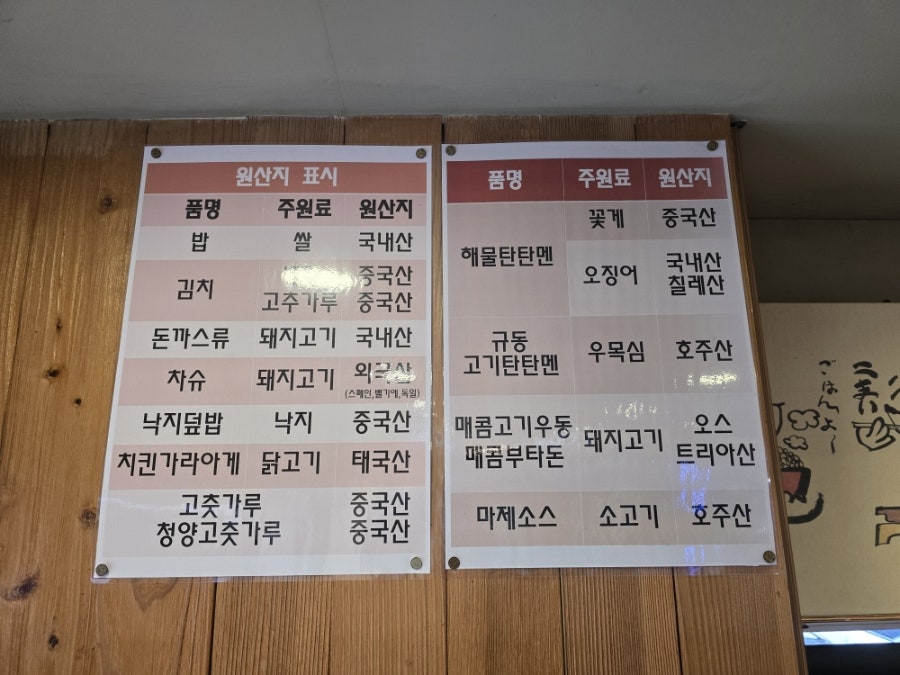 원산지 표시
품명 주원료 원산지
밥 쌀 국내산
김치 중국산
고추가루 중국산
돈까스류 돼지고기 국내산
차슈 돼지고기 외국산
(스페인,벨기에,독일)
낙지덮밥 낙지 중국산
치킨가라아게 닭고기 태국산
고춧가루 중국산
청양고춧가루 중국산
품명 주원료 원산지
해물탄탄멘 꽃게 중국산
오징어 국내산
칠레산
규동
고기탄탄멘 우목심 호주산
매콤고기우동
매콤부타돈 돼지고기 오스
트리아산
마제소스 소고기 호주산
ごはんよ〜